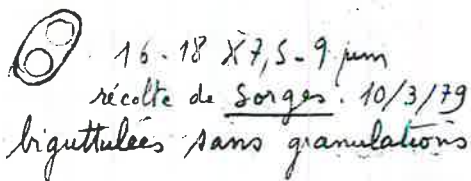 16-18 X 7,5-9 µm
récolte de Sorges. 10/3/79
biguttulées sans granulations